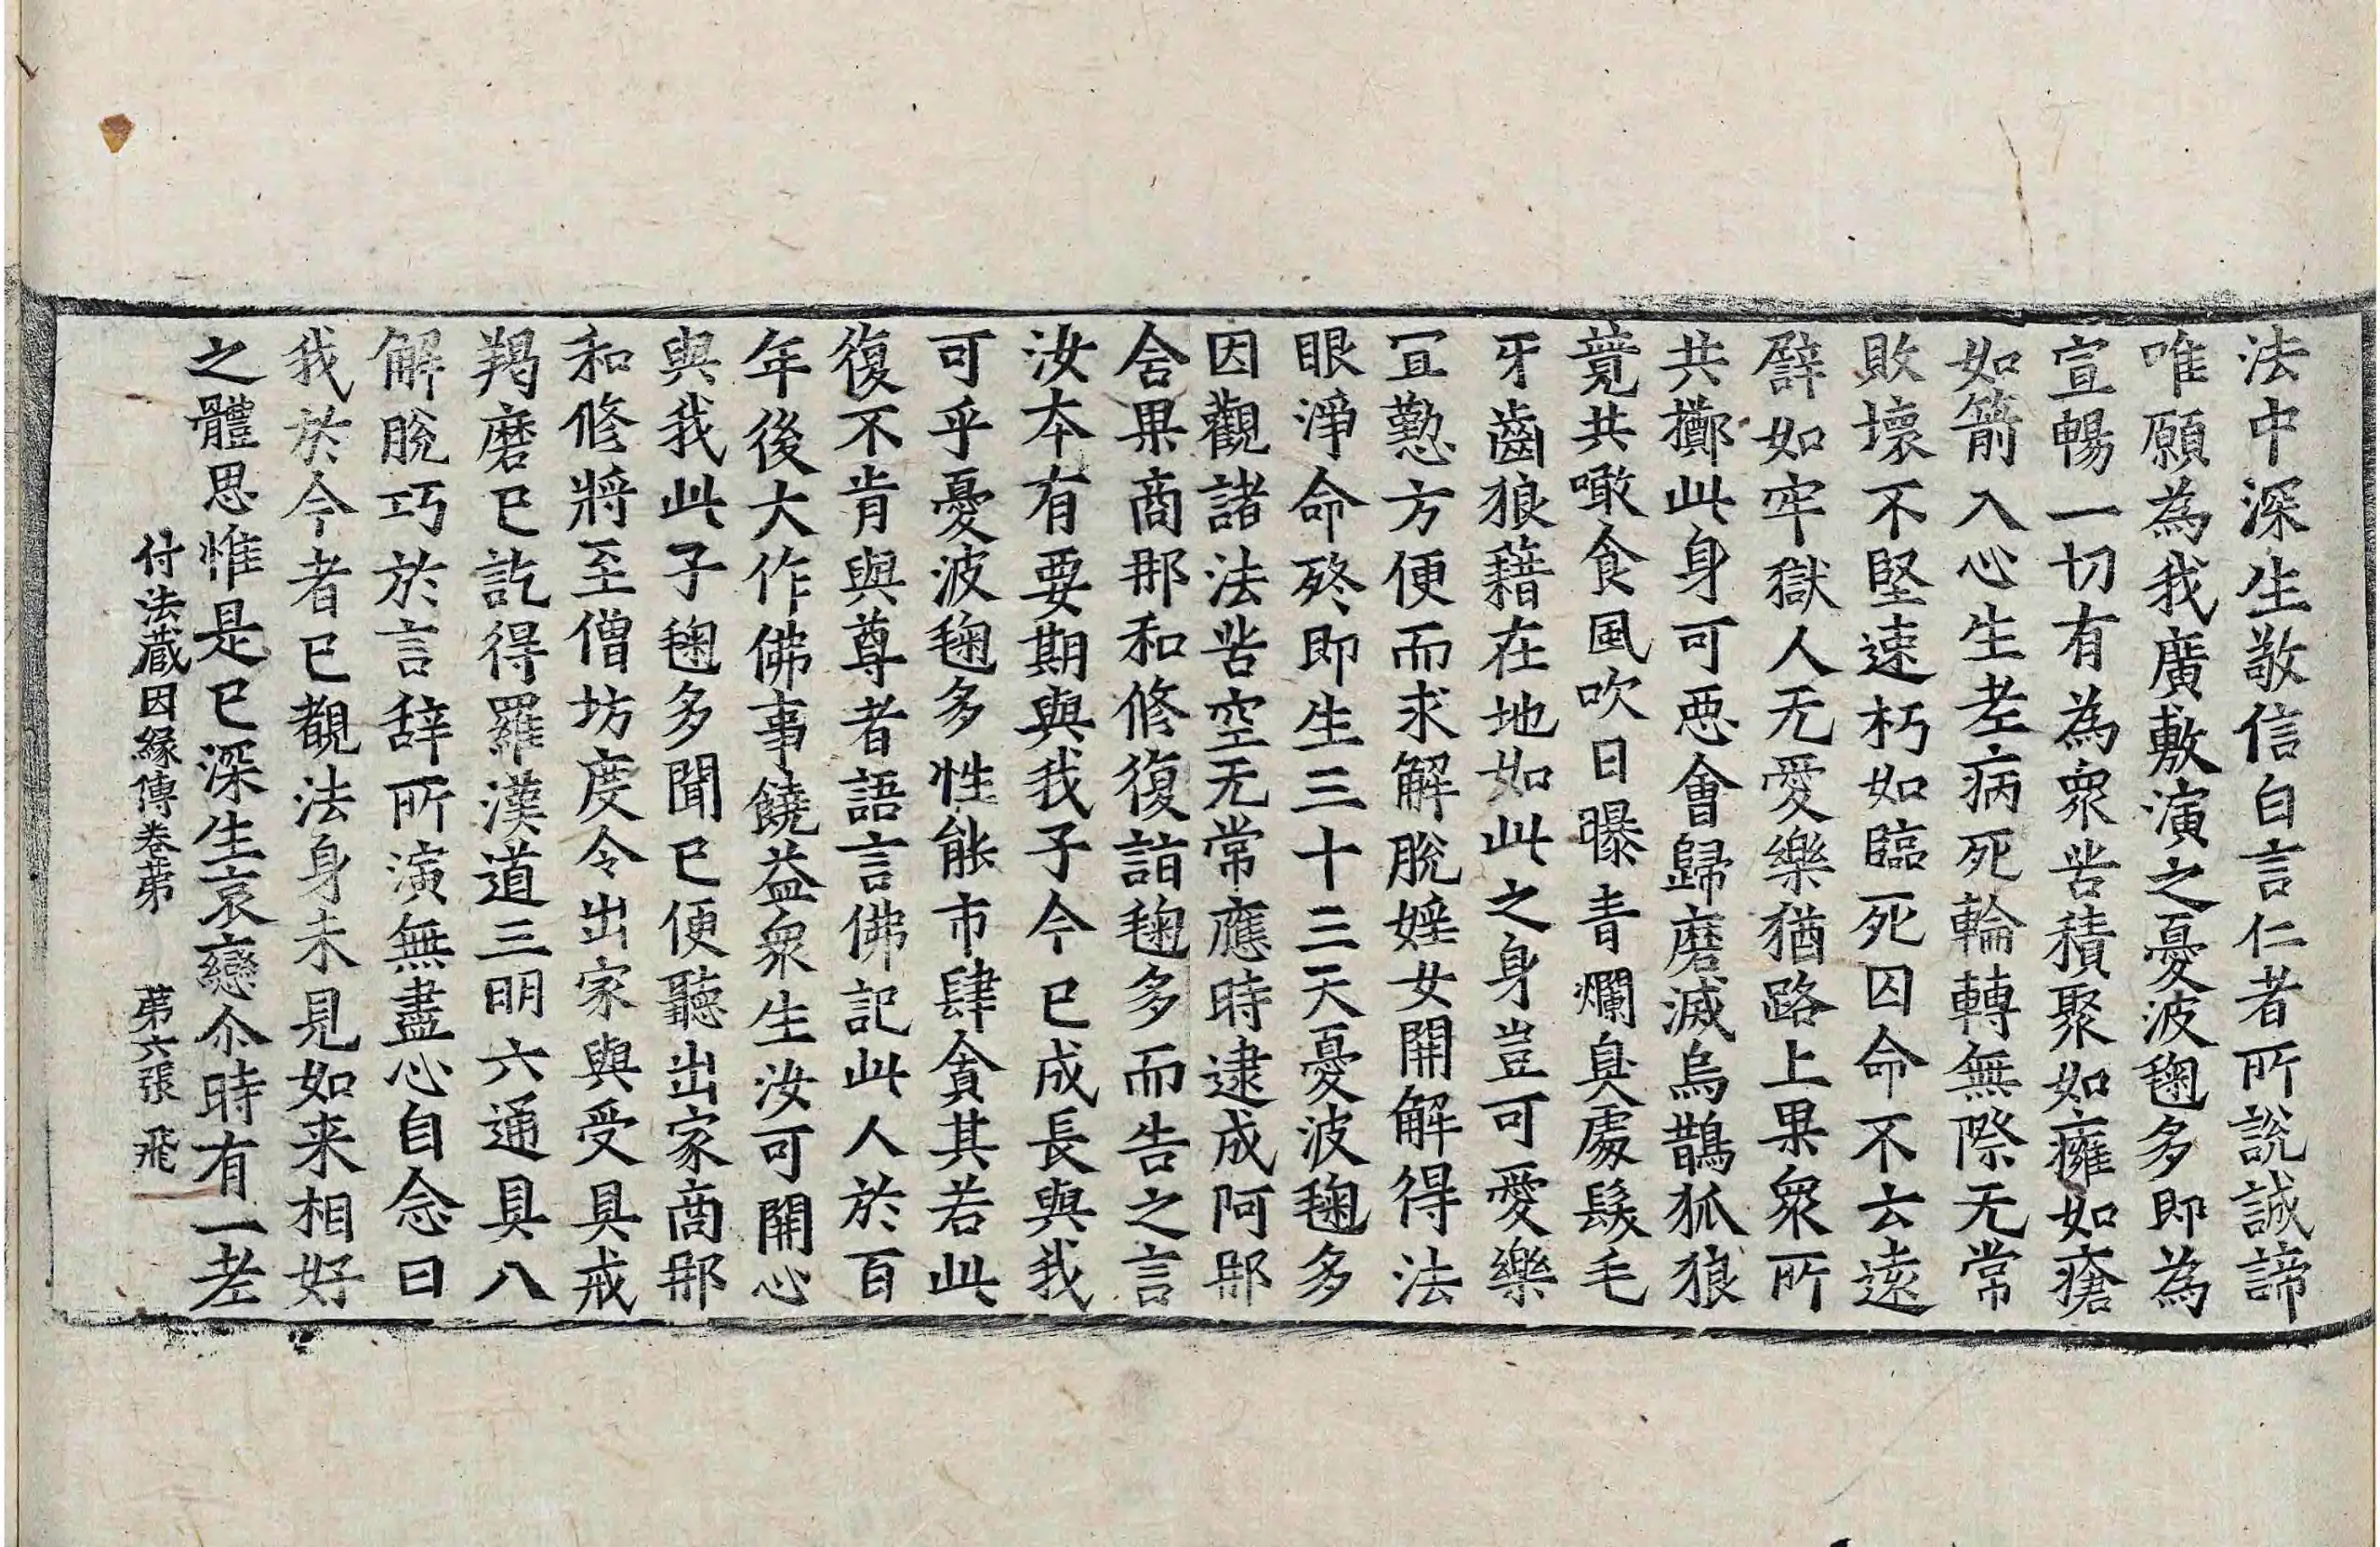 法中深生敬信白言仁者所說誠諦
唯願為我廣敷演之憂波毱多即為
宣暢一切有為衆苦積聚如癰如瘡
如箭入心生老病死輪轉無際无常
敗壞不堅速朽如臨死囚命不云遠
譬如牢獄人无愛樂猶路上果衆所
共擲此身可惡會歸磨滅烏鵲狐狼
競共噉食風吹日曝青爛臭處髮毛
牙齒狼藉在地如此之身豈可愛樂
宜懃方便而求解脫婬女開解得法
眼淨命終即生三十三天憂波毱多
因觀諸法苦空无常應時逮成阿那
含果商那和修復詣毱多而告之言
汝本有要期與我子今已成長與我
可乎憂波毱多性能市肆貪其若此
復不肯與尊者語言佛記此人於百
年後大作佛事饒益衆生汝可開心
與我此子毱多聞已便聽出家商那
和修將至僧坊度令出家與受具戒
羯磨已訖得羅漢道三明六通具八
解脫巧於言辞所演無盡心自念曰
我於今者已覩法身未見如来相好
之體思惟是已深生哀戀尒時有一老
付法藏因緣傳卷第　第六張　飛